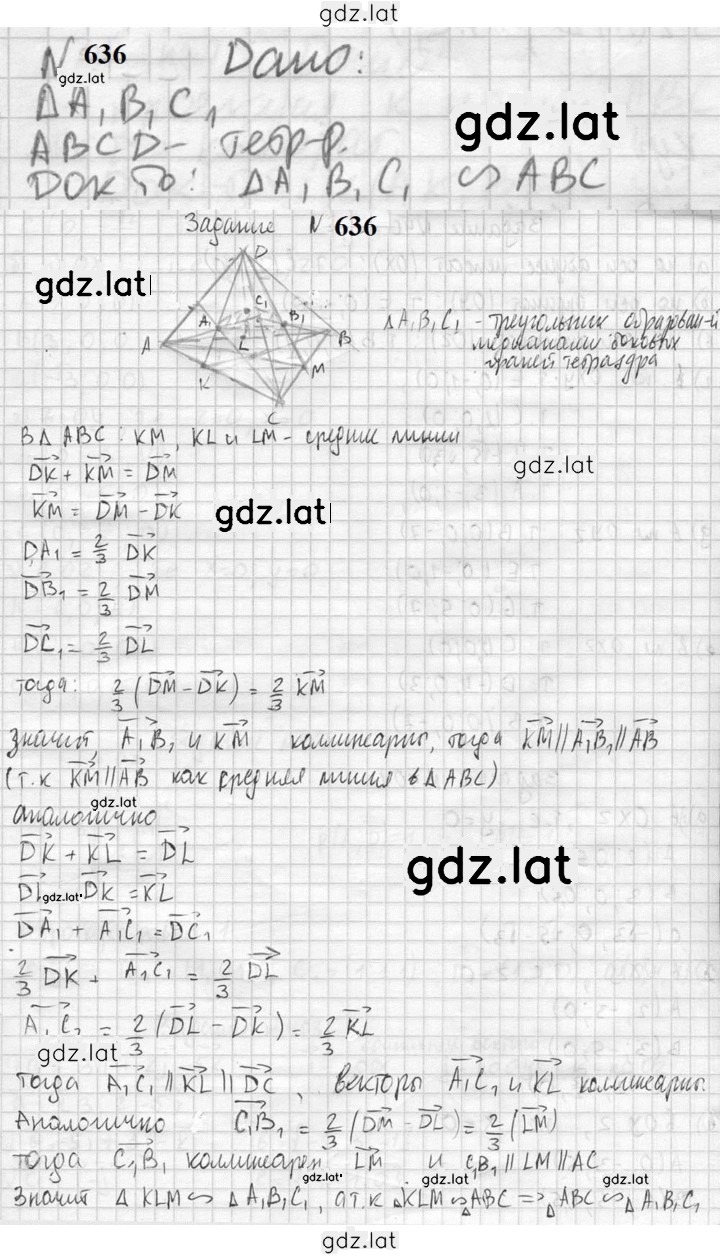 gdz.lat
N 636 Дано:
gdz.lat
ΔA₁B₁C₁
gdz.lat
ABCD - тетр-р.
Док-ть: ΔA₁B₁C₁ ∽ ABC
Задание N 636
D
gdz.lat
C₁
A₁ B₁
ΔA₁B₁C₁ - треугольник образован-й
A L B
медианами боковых
M
граней тетраэдра
K
C
В Δ ABC: KM, KL и LM - средние линии
DK + KM = DM
gdz.lat
KM = DM - DK
gdz.lat
DA₁ = 2/3 DK
DB₁ = 2/3 DM
DC₁ = 2/3 DL
тогда: 2/3 (DM - DK) = 2/3 KM
значит, A₁B₁ и KM коллинеарны, тогда KM || A₁B₁ || AB
(т.к KM || AB как средняя линия в Δ ABC)
gdz.lat
аналогично
DK + KL = DL
gdz.lat
DL - DK = KL
gdz.lat
DA₁ + A₁C₁ = DC₁
2/3 DK + A₁C₁ = 2/3 DL
A₁C₁ = 2/3 (DL - DK) = 2/3 KL
gdz.lat
тогда A₁C₁ || KL || DC, векторы A₁C₁ и KL коллинеарны.
Аналогично C₁B₁ = 2/3 (DM - DL) = 2/3 (LM)
тогда C₁B₁ коллинеарен LM и C₁B₁ || LM || AC
gdz.lat gdz.lat
Значит Δ KLM ∽ Δ A₁B₁C₁, а т.к ΔKLM ∽ ΔABC => ΔABC ∽ Δ A₁B₁C₁
gdz.lat